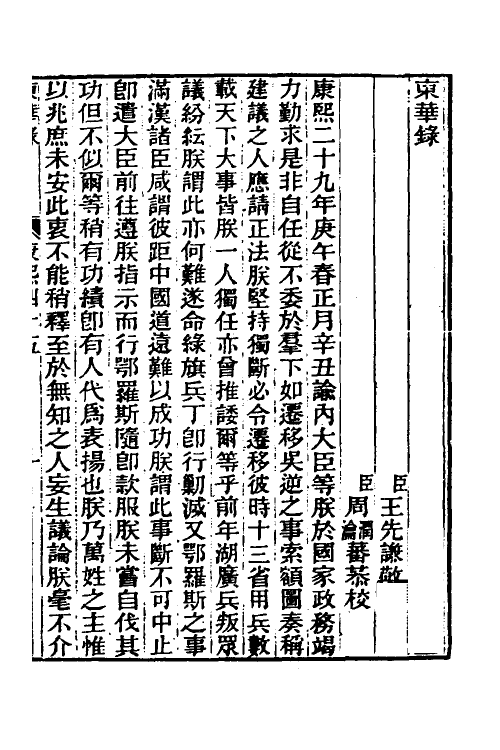 東華錄
臣王先謙敬
臣周潤蕃周瀹蕃恭校
康熙二十九年庚午春正月辛丑諭內大臣等朕於國家政務竭
力勤求是非自任從不委於羣下如遷移吳逆之事索額圖奏稱
建議之人應請正法朕堅持獨斷必令遷移彼時十三省用兵數
載天下大事皆朕一人獨任亦曾推諉爾等乎前年湖廣兵叛眾
議紛紜朕謂此亦何難遂命綠旗兵丁卽行勦滅又鄂羅斯之事
滿漢諸臣咸謂彼距中國道遠難以成功朕謂此事斷不可中止
卽遣大臣前往遵朕指示而行鄂羅斯隨卽款服朕未嘗自伐其
功但不似爾等稍有功績卽有人代爲表揚也朕乃萬姓之主惟
以兆庶未安此衷不能稍釋至於無知之人妄生議論朕毫不介